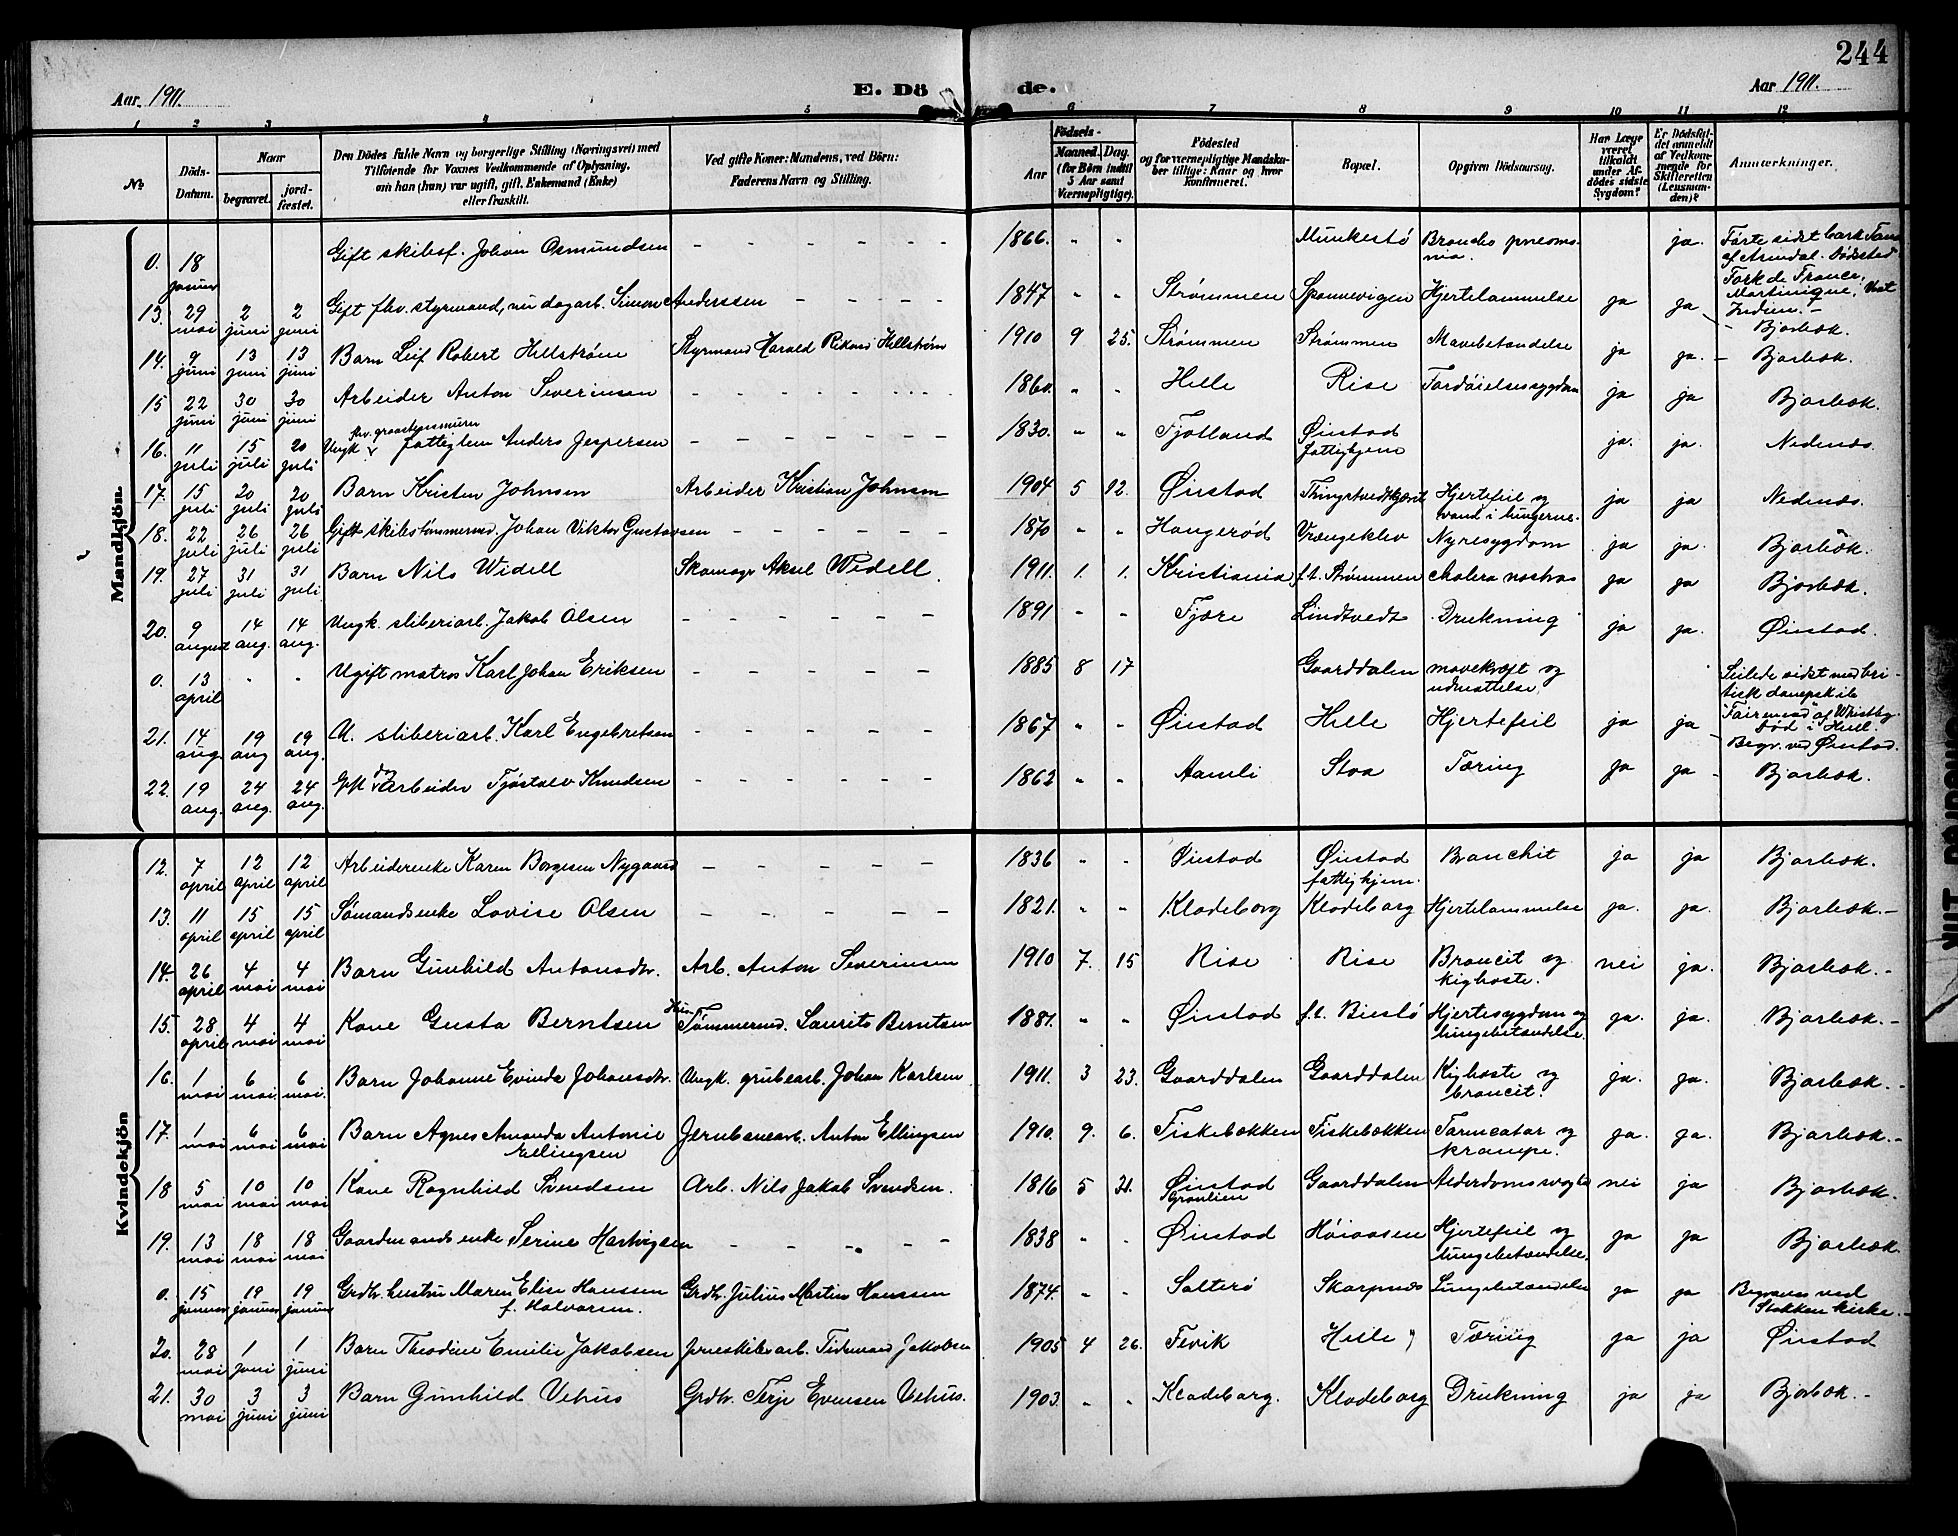 244
Aar 1911.
E. Döde.
Aar 1911.
1 2 3 4 5 6 7 8 9 10 11 12
№
Döds-Datum.
Naar
begravet.
jordfæstet.
Den Dödes fulde Navn og borgerlige Stilling (Næringsvei) med
Tilföiende for Voxnes Vedkommende af Oplysning.
om han (hun) var ugift, gift, Enkemand (Enke)
eller fraskilt.
Ved gifte Koner: Mandens, ved Börn:
Faderens Navn og Stilling.
Födsels-
Aar
Maaned. Dag.
(for Börn indtil
5 Aar samt
Værnepligtige).
Födested
og for værnepligtige Mandskaber tillige: Naar og hvor konfirmeret.
Bopæl.
Opgiven Dödsaarsag.
Har Læge været tilkaldt under Afdödes sidste Sygdom?
Er Dödsfaldet anmeldt af Vedkommende for Skifteretten (Lensmanden)?
Anmærkninger.
Mandkjön.
0. 18 januar Gift skibsf. Johan Osmundsen - - - 1866. " " Munkestø Broncho pneomonia. ja. Førte sidst bark Tana af Arendal. Dødssted Fork de France, Martinique, Vest Indien. -
13. 29 mai 2 juni 2 juni Gift fhv. styrmand, nu dagarb. Simon Anderssen - - - 1847 " " Strømmen Spannevigen Hjertelammelse ja ja - Bjorbæk.
14. 9 juni 13 juni 13 juni Barn Leif Robert Hellstrøm Styrmand Harald Rikard Hellstrøm 1910 9 25. Strømmen Strømmen Mavebetændelse ja ja. - Bjorbæk.
15 22 juni 30 juni 30 juni Arbeider Anton Severinsen - - - 1860. " " Hille Rise Fordøielsessygdom ja ja Bjorbæk.
16. 11 juli 15 juli 20 juli Ungk. fhv. graastensmurer fattiglem Anders Jespersen - - - 1830. " " Fjotland Øiestad fattighjem ja. ja. Nedenæs.
17. 15 juli 20 juli 20 juli Barn Kristen Johnsen Arbeider Kristian Johnsen 1904 5 12. Øiestad Thingstvedt Hjertefeil og vand i lungerne. ja ja Nedenæs.
18. 22 juli 26 juli 26 juli Gift skibstømmermd. Johan Viktor Gustavsen - - - 1870 " " Haugerød Vrængeklev Nyresygdom ja ja. Bjorbæk.
19. 27 juli 31 juli 31 juli Barn Nils Widell Skomagr Aksel Widell. 1911. 1. 1. Kristiania f.t. Strømmen cholera nostras ja ja Bjorbæk.
20. 9 august 14 aug. 14 aug. Ungk. sliberiarb. Jakob Olsen - - - 1891 " " Fjære Lindtvedt Drukning ja ja. Øiestad.
0. 13 april " " Ugift matros Karl Johan Eriksen - - - 1885 8 17 Gaarddalen mavekræft og udmattelse. Seilede sidst med britisk dampskib "Fairmead" af Whitby. Død i Hull. Begr. ved Øiestad.
21. 14 aug. 19 aug 19 aug. U. sliberiarb. Karl Engebretsen - - - 1867 " " Øiestad Hille Hjertefeil ja ja
22. 19 aug. 24 aug. 24 aug. Gift Arbeider Tjøstolv Knudsen - - - 1862 " " Aamli Stoa Tæring ja ja - Bjorbæk.
Kvindekjön
12. 7 april 12 april 12 april Arbeiderenke Karen Borgesen Nygaard - - - 1836 " " Øiestad Øiestad fattighjem. Bronchit ja ja Bjorbæk.
13. 11 april 15 april 15 april Sømandsenke Lovise Olsen - - - 1821. " " Klodeborg Klodeborg Hjertelammelse ja. ja. Bjorbæk. -
14. 26 april 4 mai 4 mai Barn Gunhild Antonsdtr. Arb. Anton Severinsen 1910 7. 15 Rise Rise Broncit og kighoste. nei ja. Bjorbæk. -
15. 28. april 4 mai 4 mai Kone Gusta Berntsen Tømmermd. Laurits Berntsen 1881. " " Øiestad f.t. Biestø Hjertesygdom og lungebetændelse. ja. ja. Bjorbæk. -
16. 1 mai 6 mai 6 mai. Barn Johanne Evinda Johansdtr. Ungk. grubearb. Johan Karlsen 1911. 3 23. Gaarddalen Gaarddalen Kighoste og broncit. ja. ja. Bjorbæk. -
17. 1 mai 6 mai 6 mai Barn Agnes Amanda Antonie Ellingsen Jernbanearb. Anton Ellingsen 1910. 9. 6. Fiskebækken Fiskebækken Tarmcatar og krampe. ja. ja. Bjorbæk. -
18 5 mai 10 mai 10 mai Kone Ragnhild Svendsen Arb. Nils Jakob Svendsen. 1816 5 21. Øiestad Graulien Gaarddalen Alderdomssvaghd nei ja Bjorbæk.
19. 13 mai 18 mai 18 mai Gaardmandsenke Serine Hartvigsen - - - 1838 " " Øiestad Høiaasen Hjertefeil og lungebetændelse. ja ja Bjorbæk.
0. 15 januar 19 januar 19 januar Grdbr. hustru Maren Elise Hanssen f. Halvorsen. Grdbr. Julius Martin Hanssen 1874. " " Salterø Skarpnæs Lungebetændelse ja ja Begraves ved Stokken kirke. -
20. 28 mai 1 juni 1 juni Barn Theodine Emilie Jakobsen Jernskibsarb. Tidemand Jakobsen 1905 4 26. Fevik Hille Tæring ja ja Øiestad
21. 30 mai 3 juni 3 juni Barn Gunhild Vehus Grdbr. Terje Evensen Vehus. 1903. " " Klodeborg. Klodeborg Drukning ja ja Bjorbæk. -